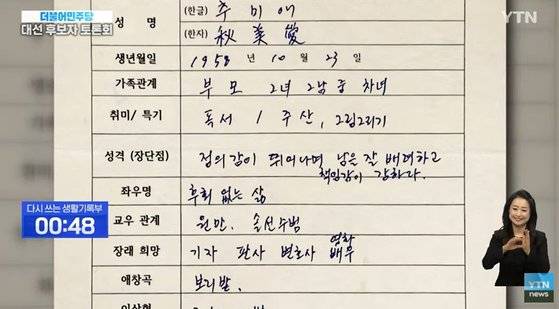 더불어민주당
대선 후보자 토론회
YTN
성 명 (한글) 추 미 애
(한자) 秋 美 愛
생년월일 1958 년 10 월 23 일
가족관계 부 모 2녀 2남 중 차녀
취미/ 특기 독서 / 주산, 그림그리기
성격 (장단점) 정의감이 뛰어나며 남을 잘 배려하고
책임감이 강하다.
좌우명 후회 없는 삶
교우 관계 원만. 솔선수범
장래 희망 기자 판사 변호사 영화배우
애창곡 보리밭.
이상형
다시 쓰는 생활기록부
00:48
YTN
news